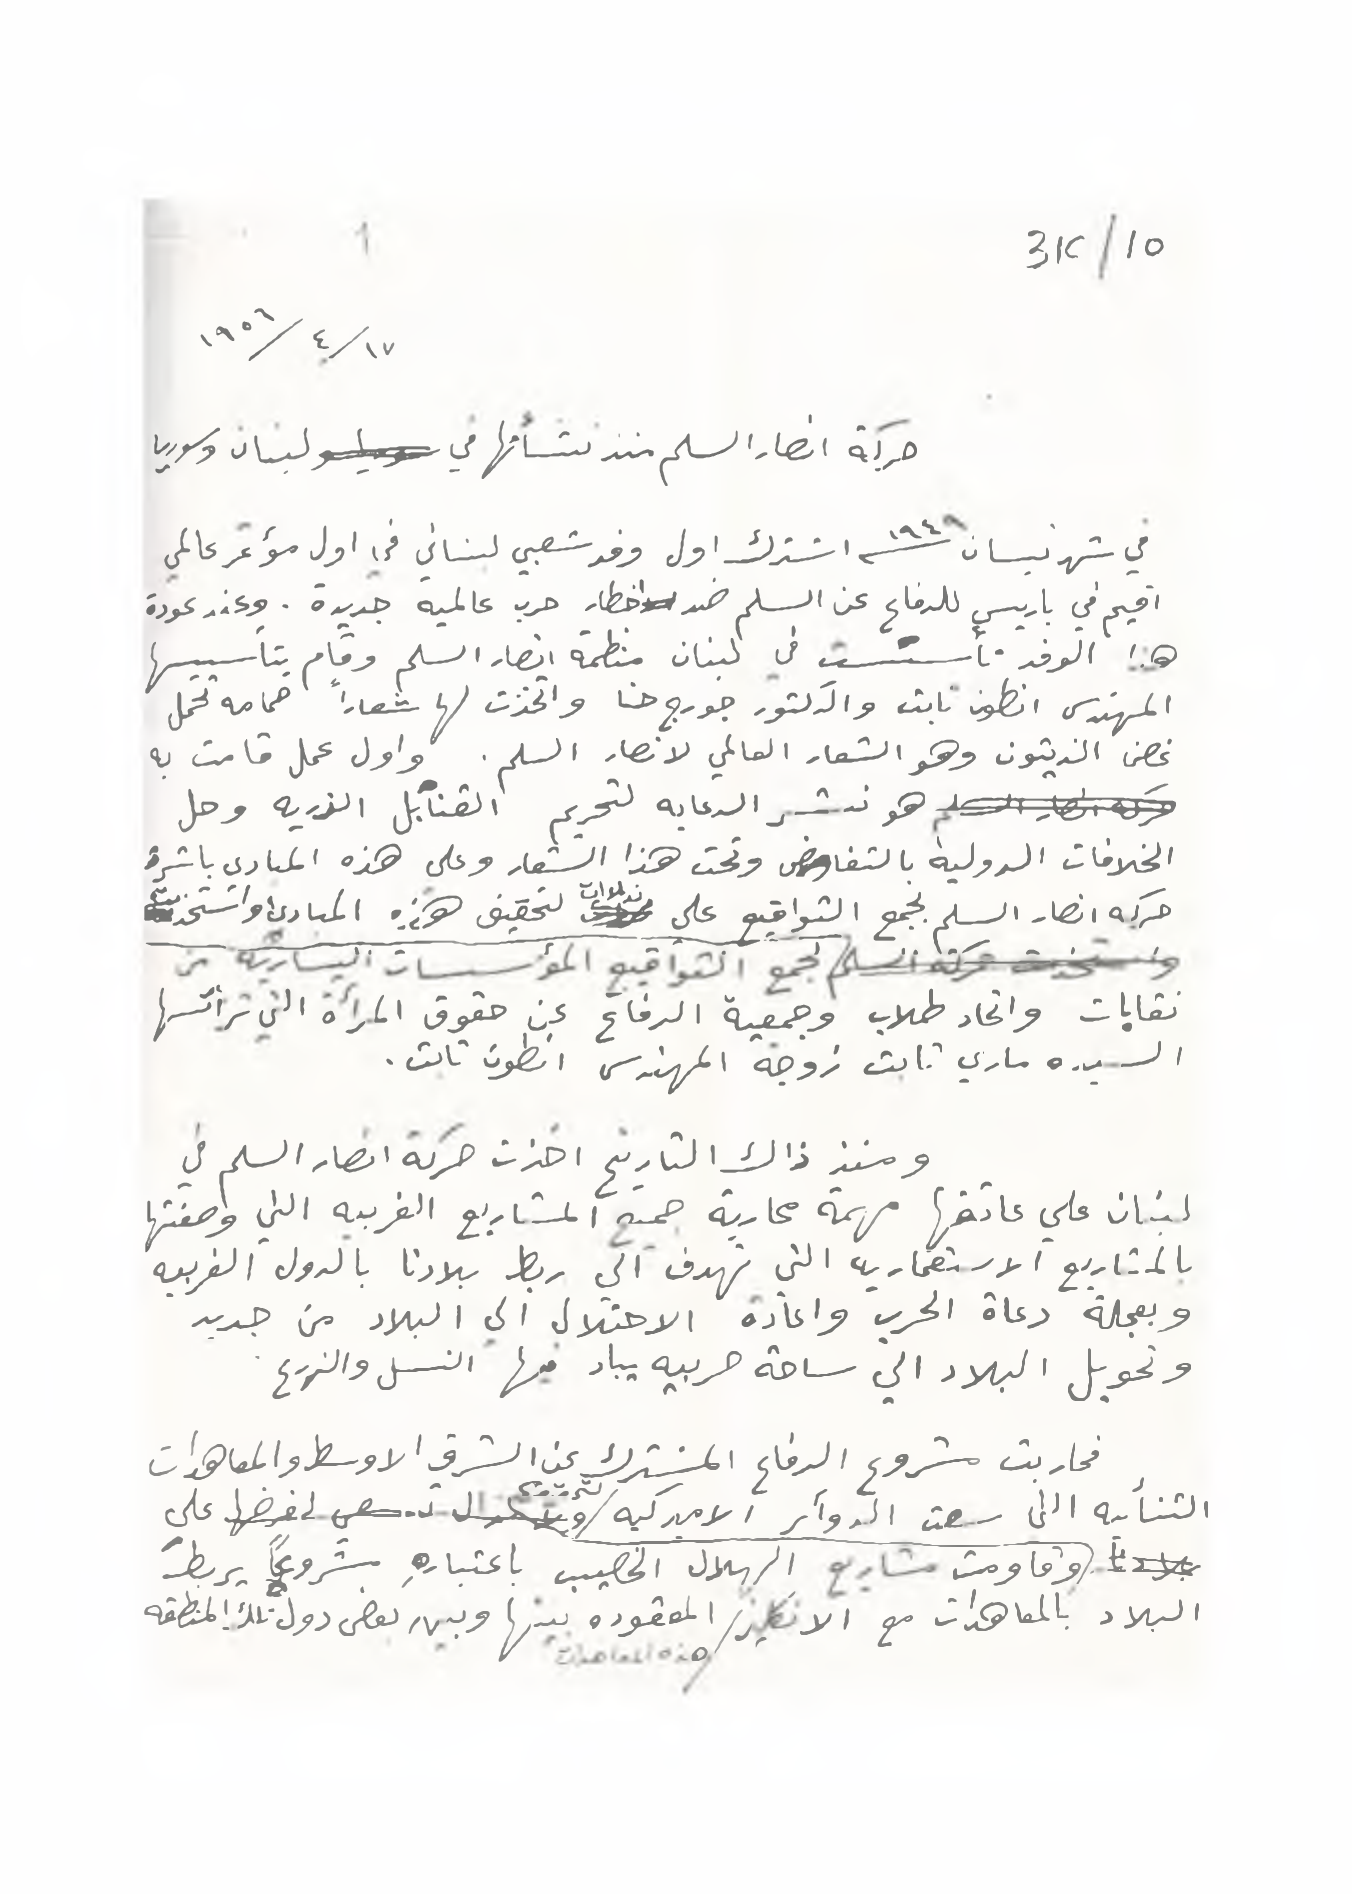 31C/10
1
١٧/٤/١٩٥٦
حركة انصار السلم منذ نشأتها في لبنان وسوريا
في شهر نيسان ١٩٤٩ اشترك اول وفد شعبي لبناني في اول مؤتمر عالمي
اقيم في باريس للدفاع عن السلم ضد اخطار حرب عالمية جديدة . وعند عودة
هذا الوفد تأسست في لبنان منظمة انصار السلم وقام بتأسيسها
المهندس انطون ثابت والدكتور جورج حنا واتخذت لها شعاراً حمامه تحمل
غصن الزيتون وهو الشعار العالمي لانصار السلم . واول عمل قامت به
حركة انصار السلم هو نشر الدعايه لتحريم القنابل الذريه وحل
الخلافات الدولية بالتفاوض وتحت هذا الشعار وعلى هذه المبادئ باشرة
حركه انصار السلم لجمع التواقيع على نداءات لتحقيق هذه المبادئ واستخدمت
واستخدمت حركة السلم لجمع التواقيع المؤسسات اليسارية من
نقابات واتحاد طلاب وجمعية الدفاع عن حقوق المرأة التي ترأسها
السيده ماري ثابت زوجة المهندس انطون ثابت .
ومنذ ذاك التاريخ اخذت حركة انصار السلم في
لبنان علي عاتقها مهمة محاربة جميع المشاريع الغربيه التي وصفتها
بالمشاريع الاستعماريه التي تهدف الى ربط بلادنا بالدول الغربيه
وبعجلة دعاة الحرب واعادة الاحتلال الى البلاد من جديد
وتحويل البلاد الي ساحة حربيه يباد فيها النسل والزرع .
فحاربت مشروع الدفاع المشترك عن الشرق الاوسط والمعاهدات
الثنائيه التي سعت الدوائر الاميركيه لفرضها على
بلادنا وقاومت مشاريع الهلال الخصيب باعتباره مشروعاً يربط
البلاد بالمعاهدات مع الانكليز المعقوده بينها وبين بعض دول تلك المنطقه
هذه المعاهدات